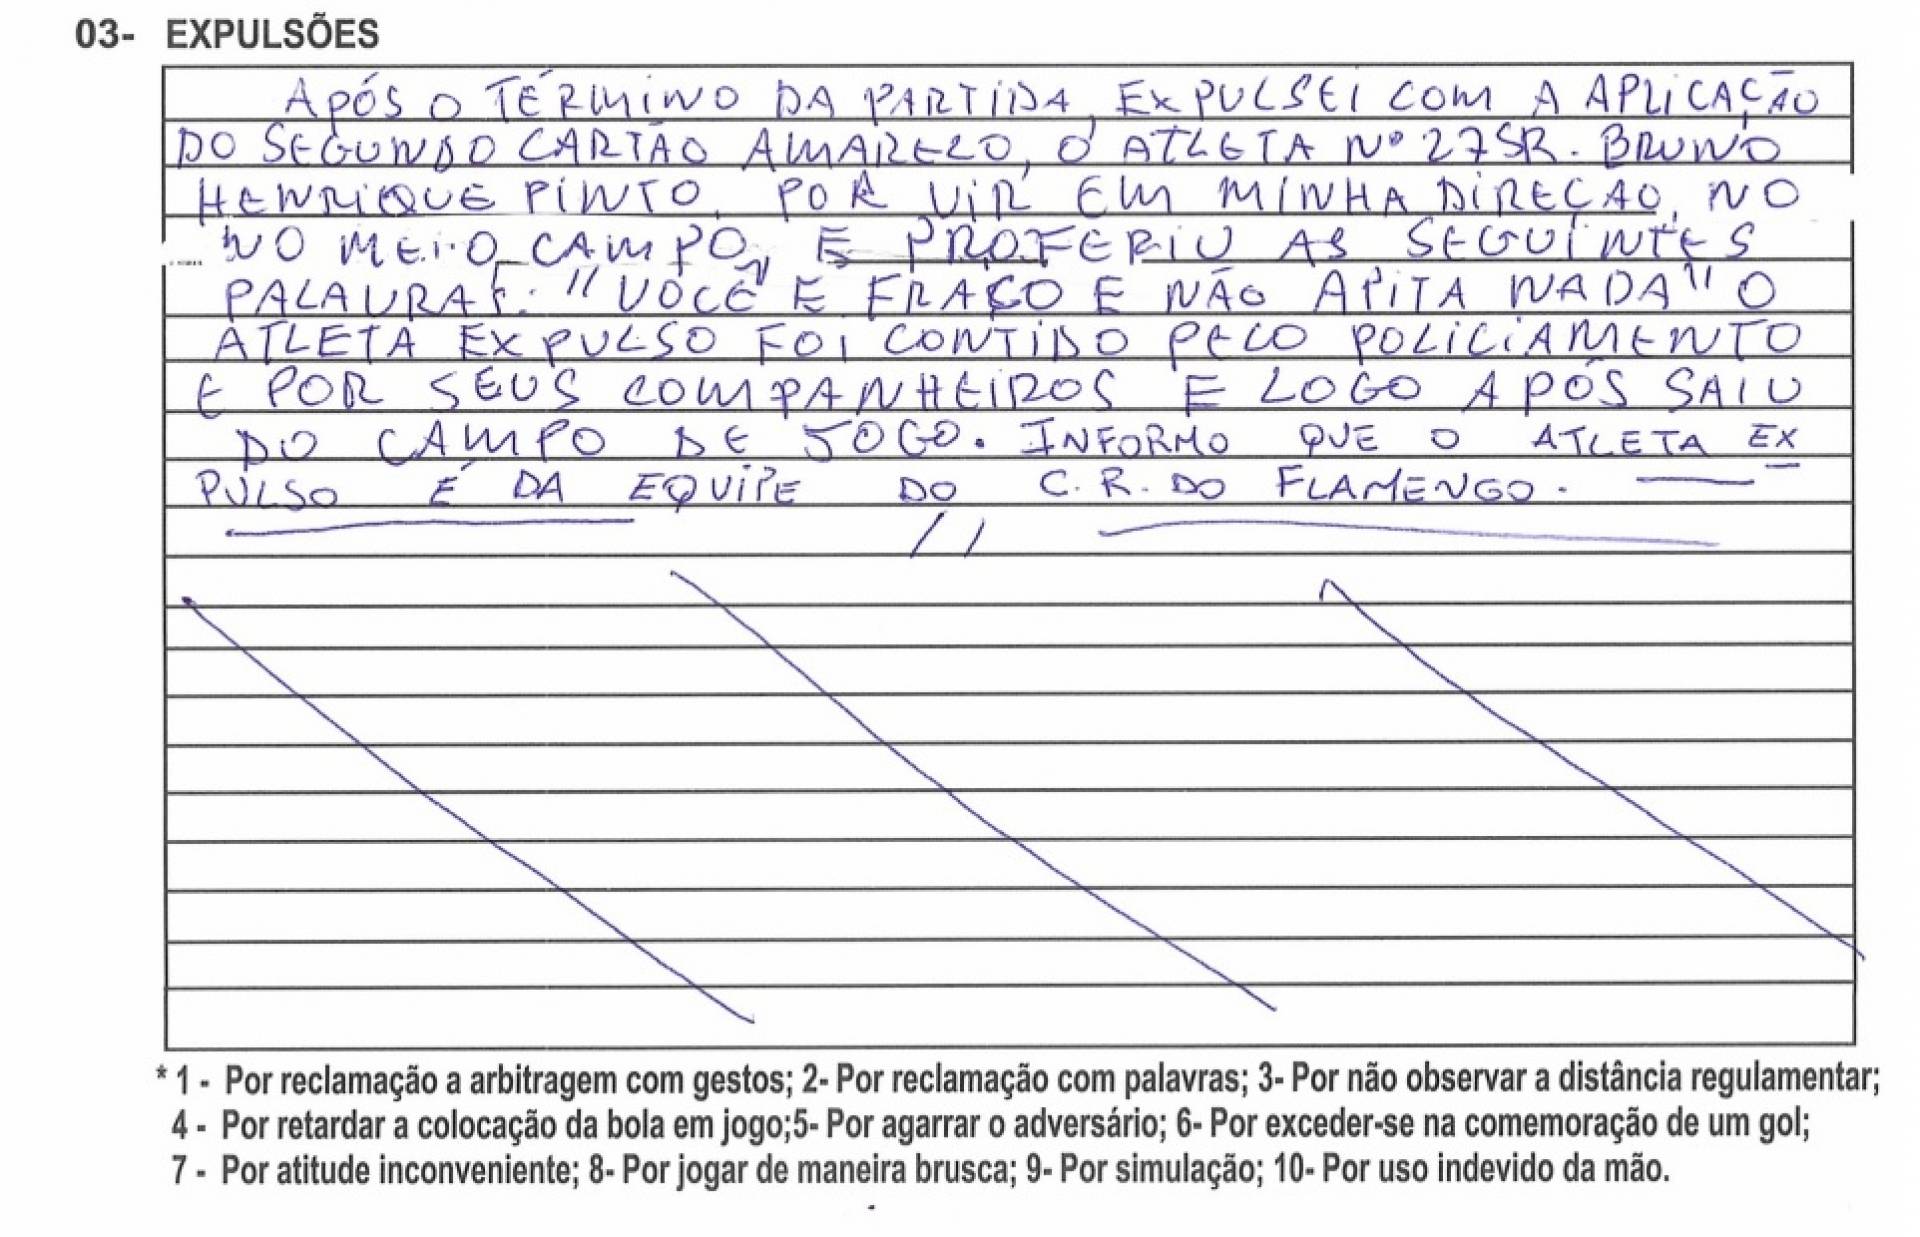 03- EXPULSÕES
APÓS O TÉRMINO DA PARTIDA, EXPULSEI COM A APLICAÇÃO
DO SEGUNDO CARTÃO AMARELO, O ATLETA Nº 27 SR. BRUNO
HENRIQUE PINTO. POR VIR EM MINHA DIREÇÃO, NO
NO MEIO CAMPO, E PROFERIU AS SEGUINTES
PALAVRAS: "VOCÊ É FRACO E NÃO APITA NADA" O
ATLETA EXPULSO FOI CONTIDO PELO POLICIAMENTO
E POR SEUS COMPANHEIROS E LOGO APÓS SAIU
DO CAMPO DE JOGO. INFORMO QUE O ATLETA EX
PULSO É DA EQUIPE DO C.R. DO FLAMENGO.
* 1 - Por reclamação a arbitragem com gestos; 2- Por reclamação com palavras; 3- Por não observar a distância regulamentar;
4 - Por retardar a colocação da bola em jogo;5- Por agarrar o adversário; 6- Por exceder-se na comemoração de um gol;
7 - Por atitude inconveniente; 8- Por jogar de maneira brusca; 9- Por simulação; 10- Por uso indevido da mão.